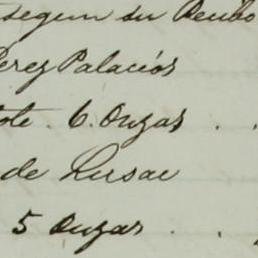 segun su Recibo
Perez Palacios
6. Onzas . .
de Lusac
5 Onzas . . .